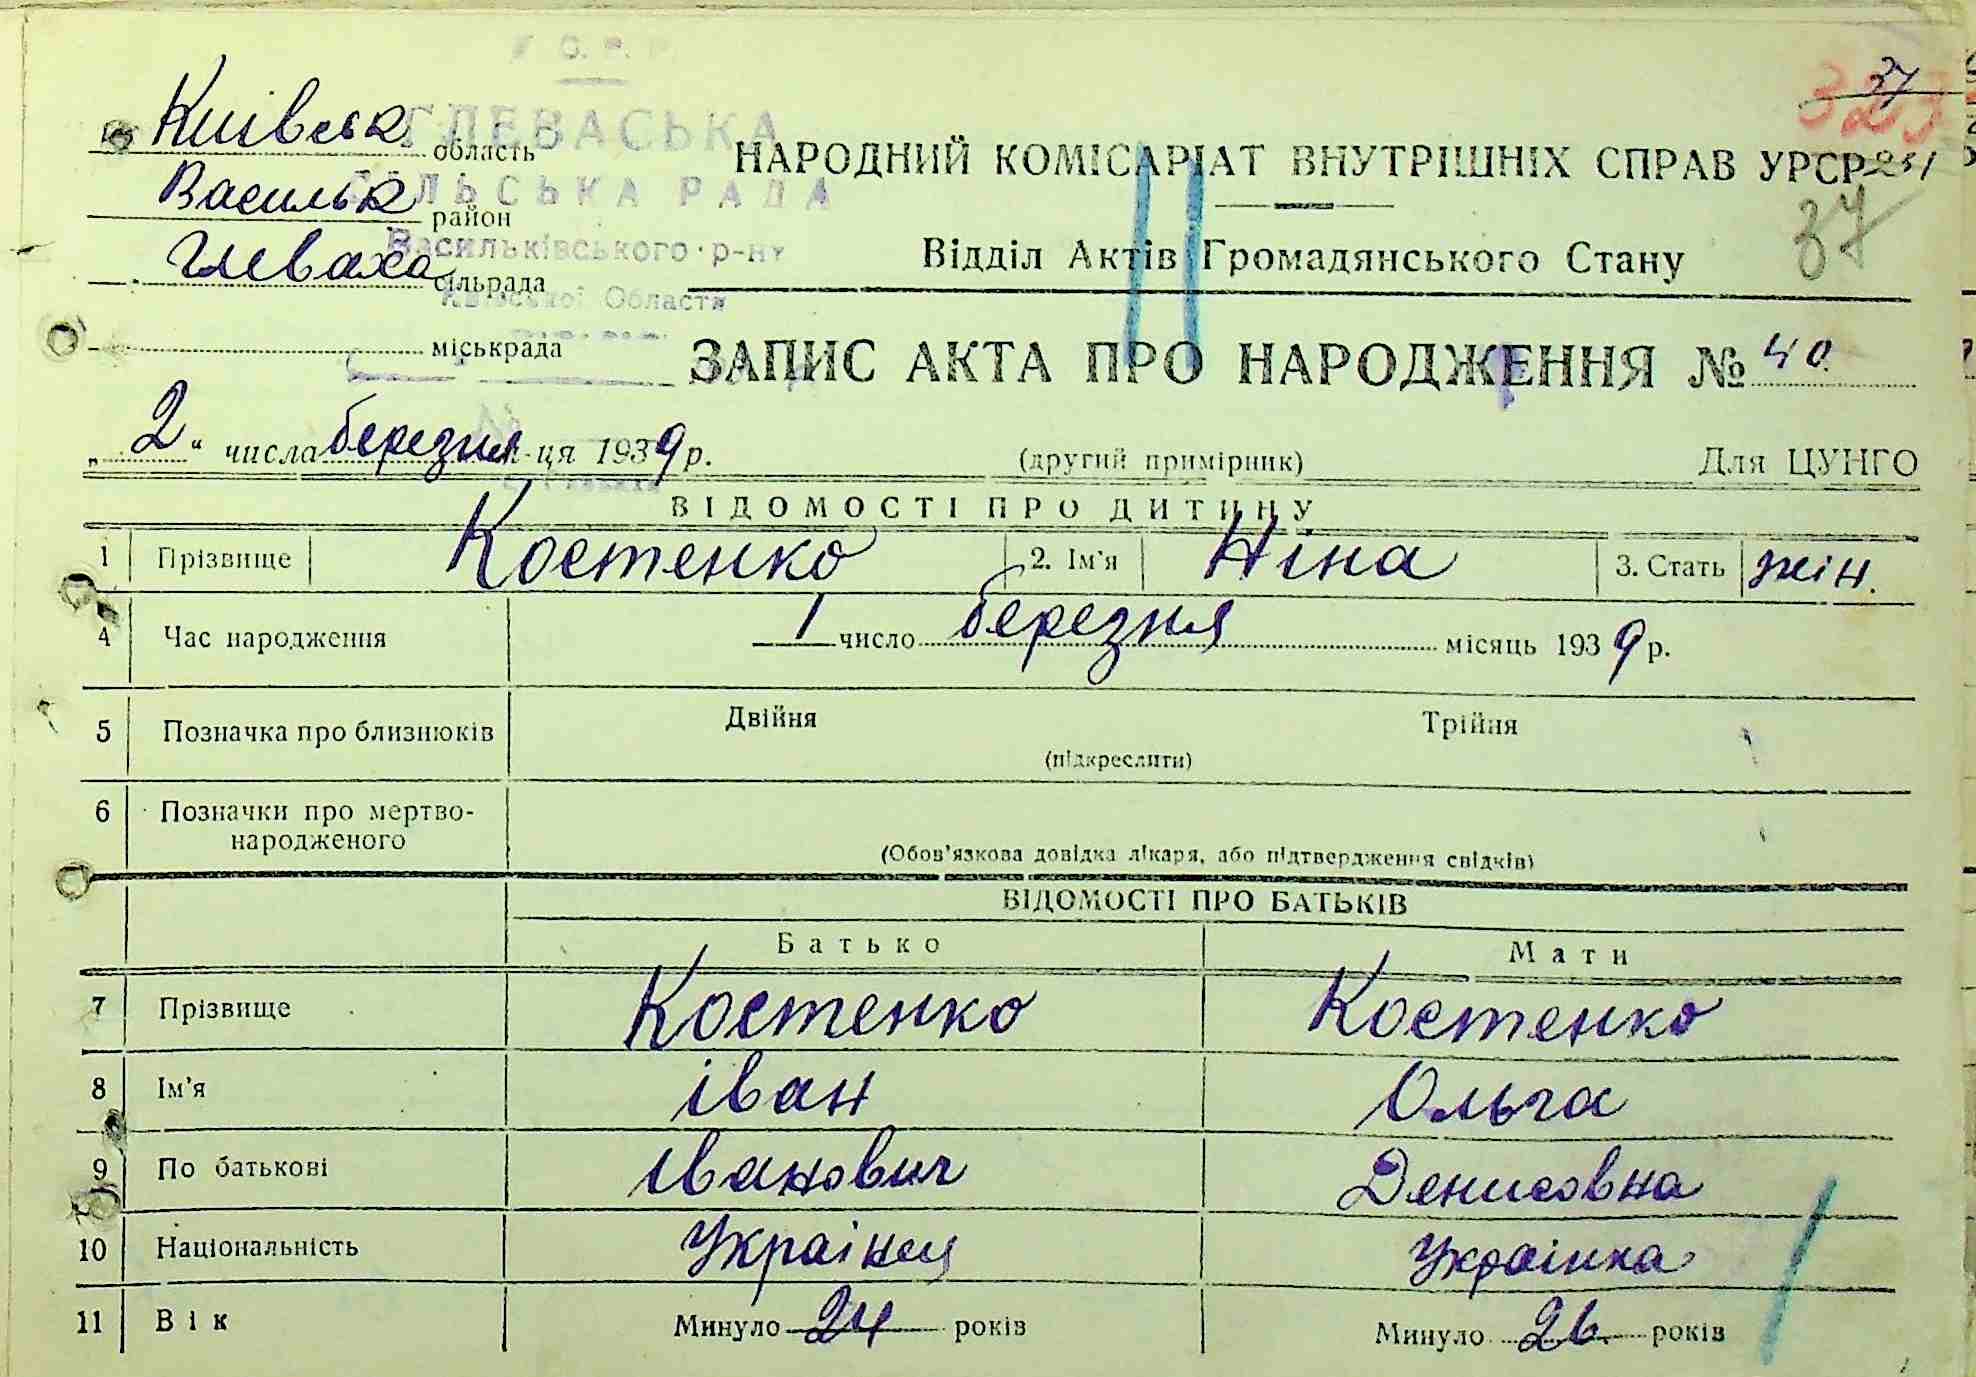 Київська область
ГЛЕВАСЬКА
Васильк район
СІЛЬСЬКА РАДА
Васильківського р-ну
Глеваха сільрада
Київської Области
міськрада
37
323
НАРОДНИЙ КОМІСАРІАТ ВНУТРІШНІХ СПРАВ УРСР 231
37
Відділ Актів Громадянського Стану
ЗАПИС АКТА ПРО НАРОДЖЕННЯ № 40
„2“ числа березня м-ця 1939 р. (другий примірник) Для ЦУНГО
ВІДОМОСТІ ПРО ДИТИНУ
1 Прізвище Костенко 2. Ім'я Ніна 3. Стать жін.
4 Час народження 1 число березня місяць 1939 р.
5 Позначка про близнюків Двійня Трійня
(підкреслити)
6 Позначки про мертво-
народженого
(Обов'язкова довідка лікаря, або підтвердження свідків)
ВІДОМОСТІ ПРО БАТЬКІВ
Батько Мати
7 Прізвище Костенко Костенко
8 Ім'я іван Ольга
9 По батькові іванович Денисовна
10 Національність Українец Українка
11 Вік Минуло 24 років Минуло 26 років